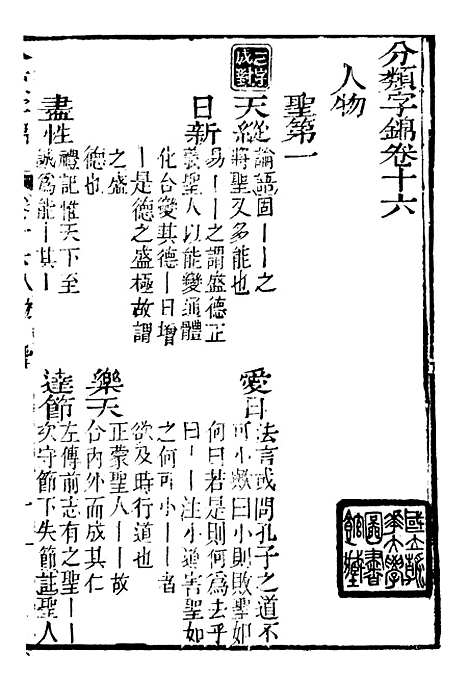 分類字錦卷十六
人物
聖第一
天縱
論語固｜｜之
將聖又多能也
愛日
法言或問孔子之道不
可小歟曰小則敗聖如
何曰若是則何爲去乎
曰｜｜注小道害聖如
之何可小｜｜者
欲及時行道也
日新
易｜｜之謂盛德正
義聖人以能變通體
化合變其德｜日增
｜是德之盛極故謂
之盛
德也
樂天
正蒙聖人｜｜故
合內外而成其仁
盡性
禮記惟天下至
誠爲能｜其｜
達節
左傳前志有之聖｜｜
次守節下失節註聖人
國立
華大學
圖書
館藏